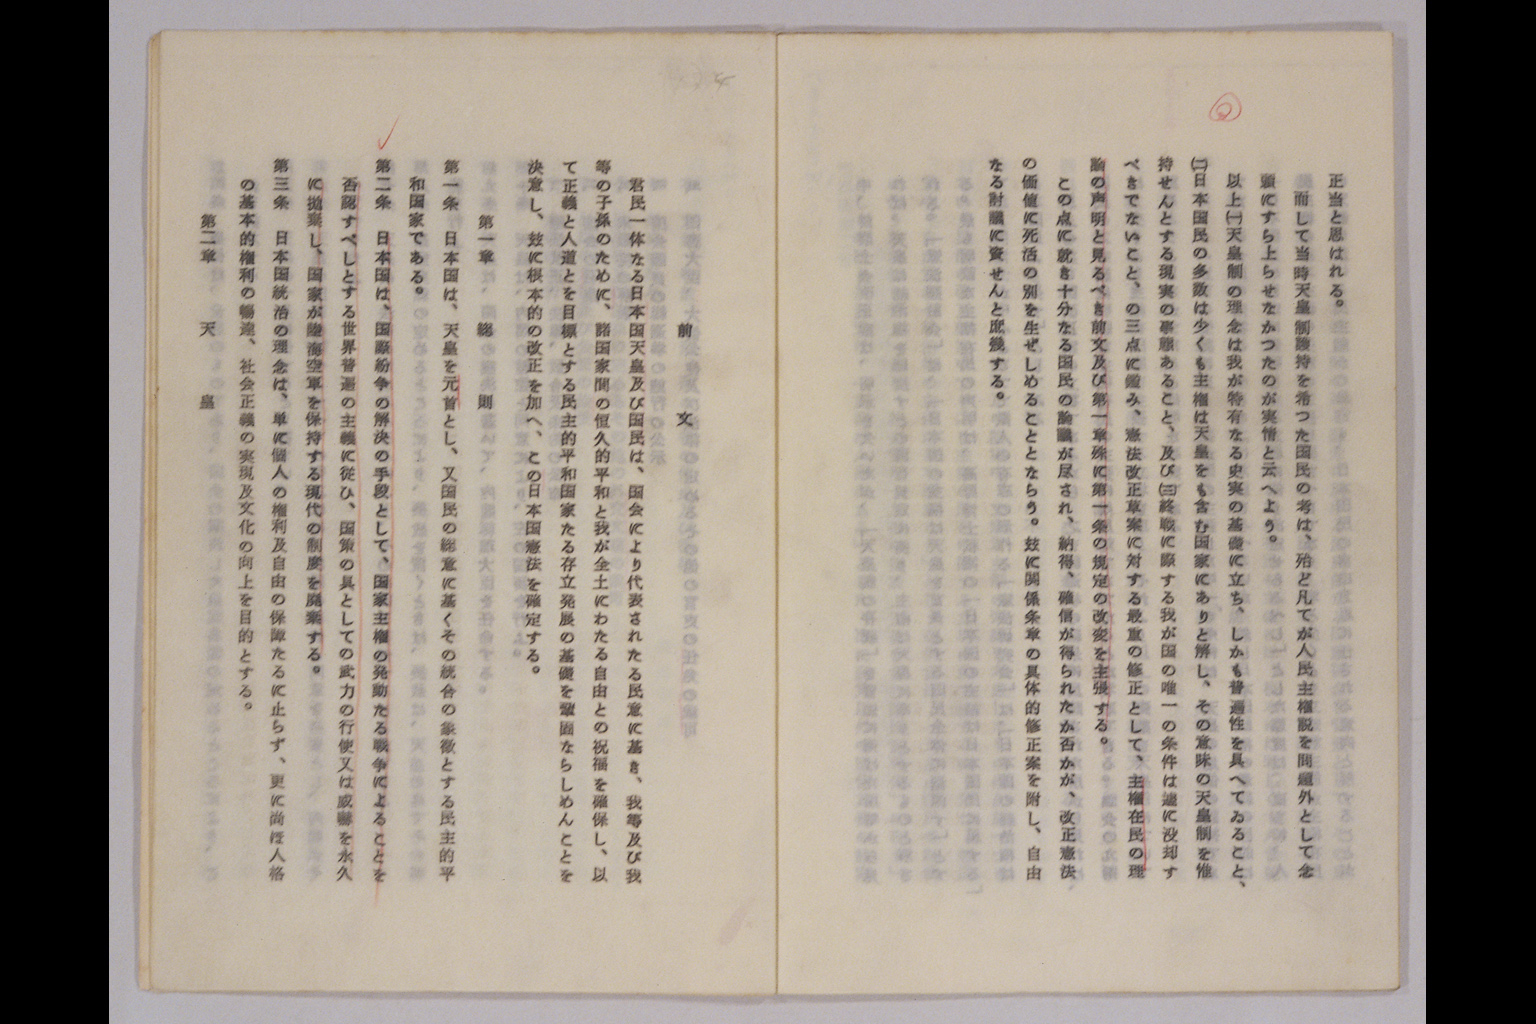 正当と思はれる。
而して当時天皇制護持を希つた国民の考は、殆ど凡てが人民主権説を問題外として念
頭にすら上らせなかつたのが実情と云へよう。
以上㈠天皇制の理念は我が特有なる史実の基礎に立ち、しかも普遍性を具へてゐること、
㈡日本国民の多数は少くも主権は天皇をも含む国家にありと解し、その意味の天皇制を惟
持せんとする現実の事態あること、及び㈢終戦に際する我が国の唯一の条件は遽に没却す
べきでないこと、の三点に鑑み、憲法改正草案に対する最重の修正として、主権在民の理
論の声明と見るべき前文及び第一章殊に第一条の規定の改変を主張する。
この点に就き十分なる国民の論議が尽され、納得、確信が得られたか否かが、改正憲法
の価値に死活の別を生ぜしめることとならう。玆に関係条章の具体的修正案を附し、自由
なる討議に資せんと庶幾する。
前文
君民一体なる日本国天皇及び国民は、国会により代表されたる民意に基き、我等及び我
等の子孫のために、諸国家間の恒久的平和と我が全土にわたる自由との祝福を確保し、以
て正義と人道とを目標とする民主的平和国家たる存立発展の基礎を鞏固ならしめんことを
決意し、玆に根本的の改正を加へ、この日本国憲法を確定する。
第一章　総則
第一条　日本国は、天皇を元首とし、又国民の総意に基くその統合の象徴とする民主的平
和国家である。
第二条　日本国は、国際紛争の解決の手段として、国家主権の発動たる戦争によることを
否認すべしとする世界普遍の主義に従ひ、国策の具としての武力の行使又は威嚇を永久
に抛棄し、国家が陸海空軍を保持する現代の制度を廃棄する。
第三条　日本国統治の理念は、単に個人の権利及自由の保障たるに止らず、更に尚ほ人格
の基本的権利の暢達、社会正義の実現及文化の向上を目的とする。
第二章　天皇